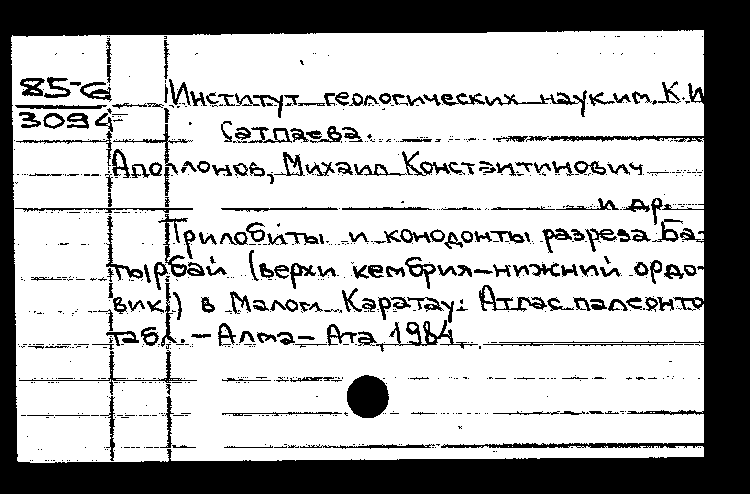 85-6
3094
Институт геологических наук им. К.И
Сатпаева.
Аполлонов, Михаил Константинович
и др.
Трилобиты и конодонты разреза Ба-
тырбай (верхи кембрия-нижний ордо-
вик) в Малом Каратау: Атлас палеонто
табл. - Алма-Ата, 1984.